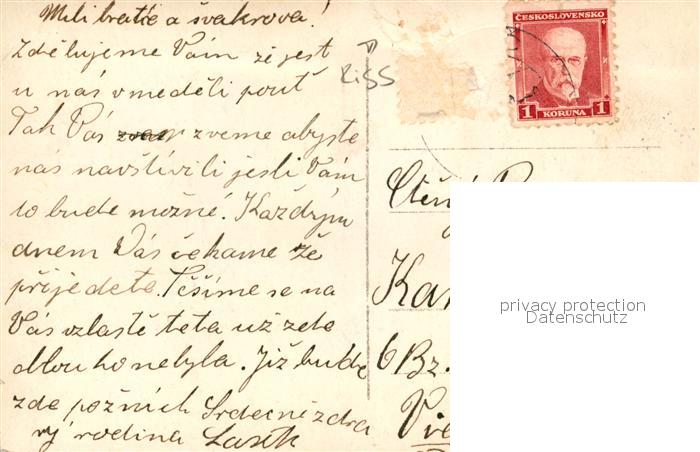 Milí bratře a švakrová!
Zdělujeme Vám že jest
u nás v neděli pouť
Tak Vás zveme abyste
nás navštívili jesli Vám
to bude možné. Každým
dnem Vás čekame že
přijedete. Těšíme se na
Vás vzlastě teta už zde
dlouho nebyla. Již bude
zde po žních Srdecně zdra
vý rodina
RiSS
ČESKOSLOVENSKO
1 KORUNA 1
Ctěný
Kar
6 Bz.
privacy protection
Datenschutz